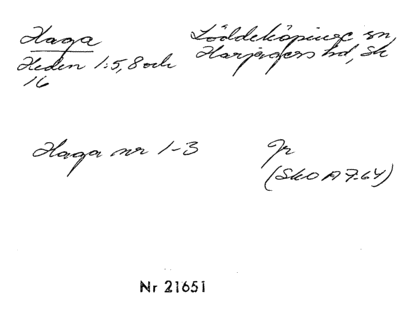 Haga
Heden 1:5, 8 och
16
Löddeköpinge sn,
Harjagers hd, Sk
Haga nr 1-3
Jr
(SkO A 7:64)
Nr 21651